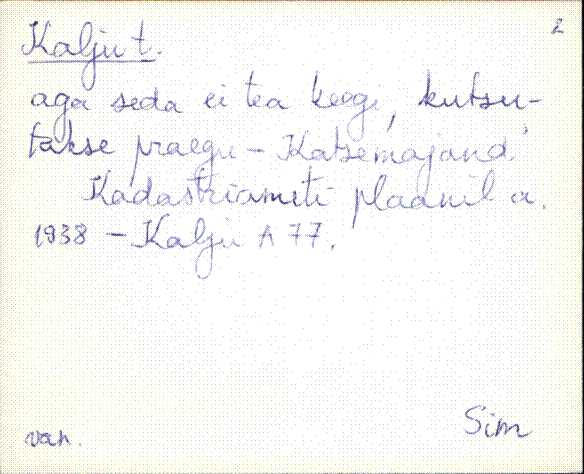 2
Kalju t.
aga seda ei tea keegi, kutsu-
takse praegu - Katsemajand.
Kadastriameti plaanil a.
1938 - Kalju A 77.
Sim
van.